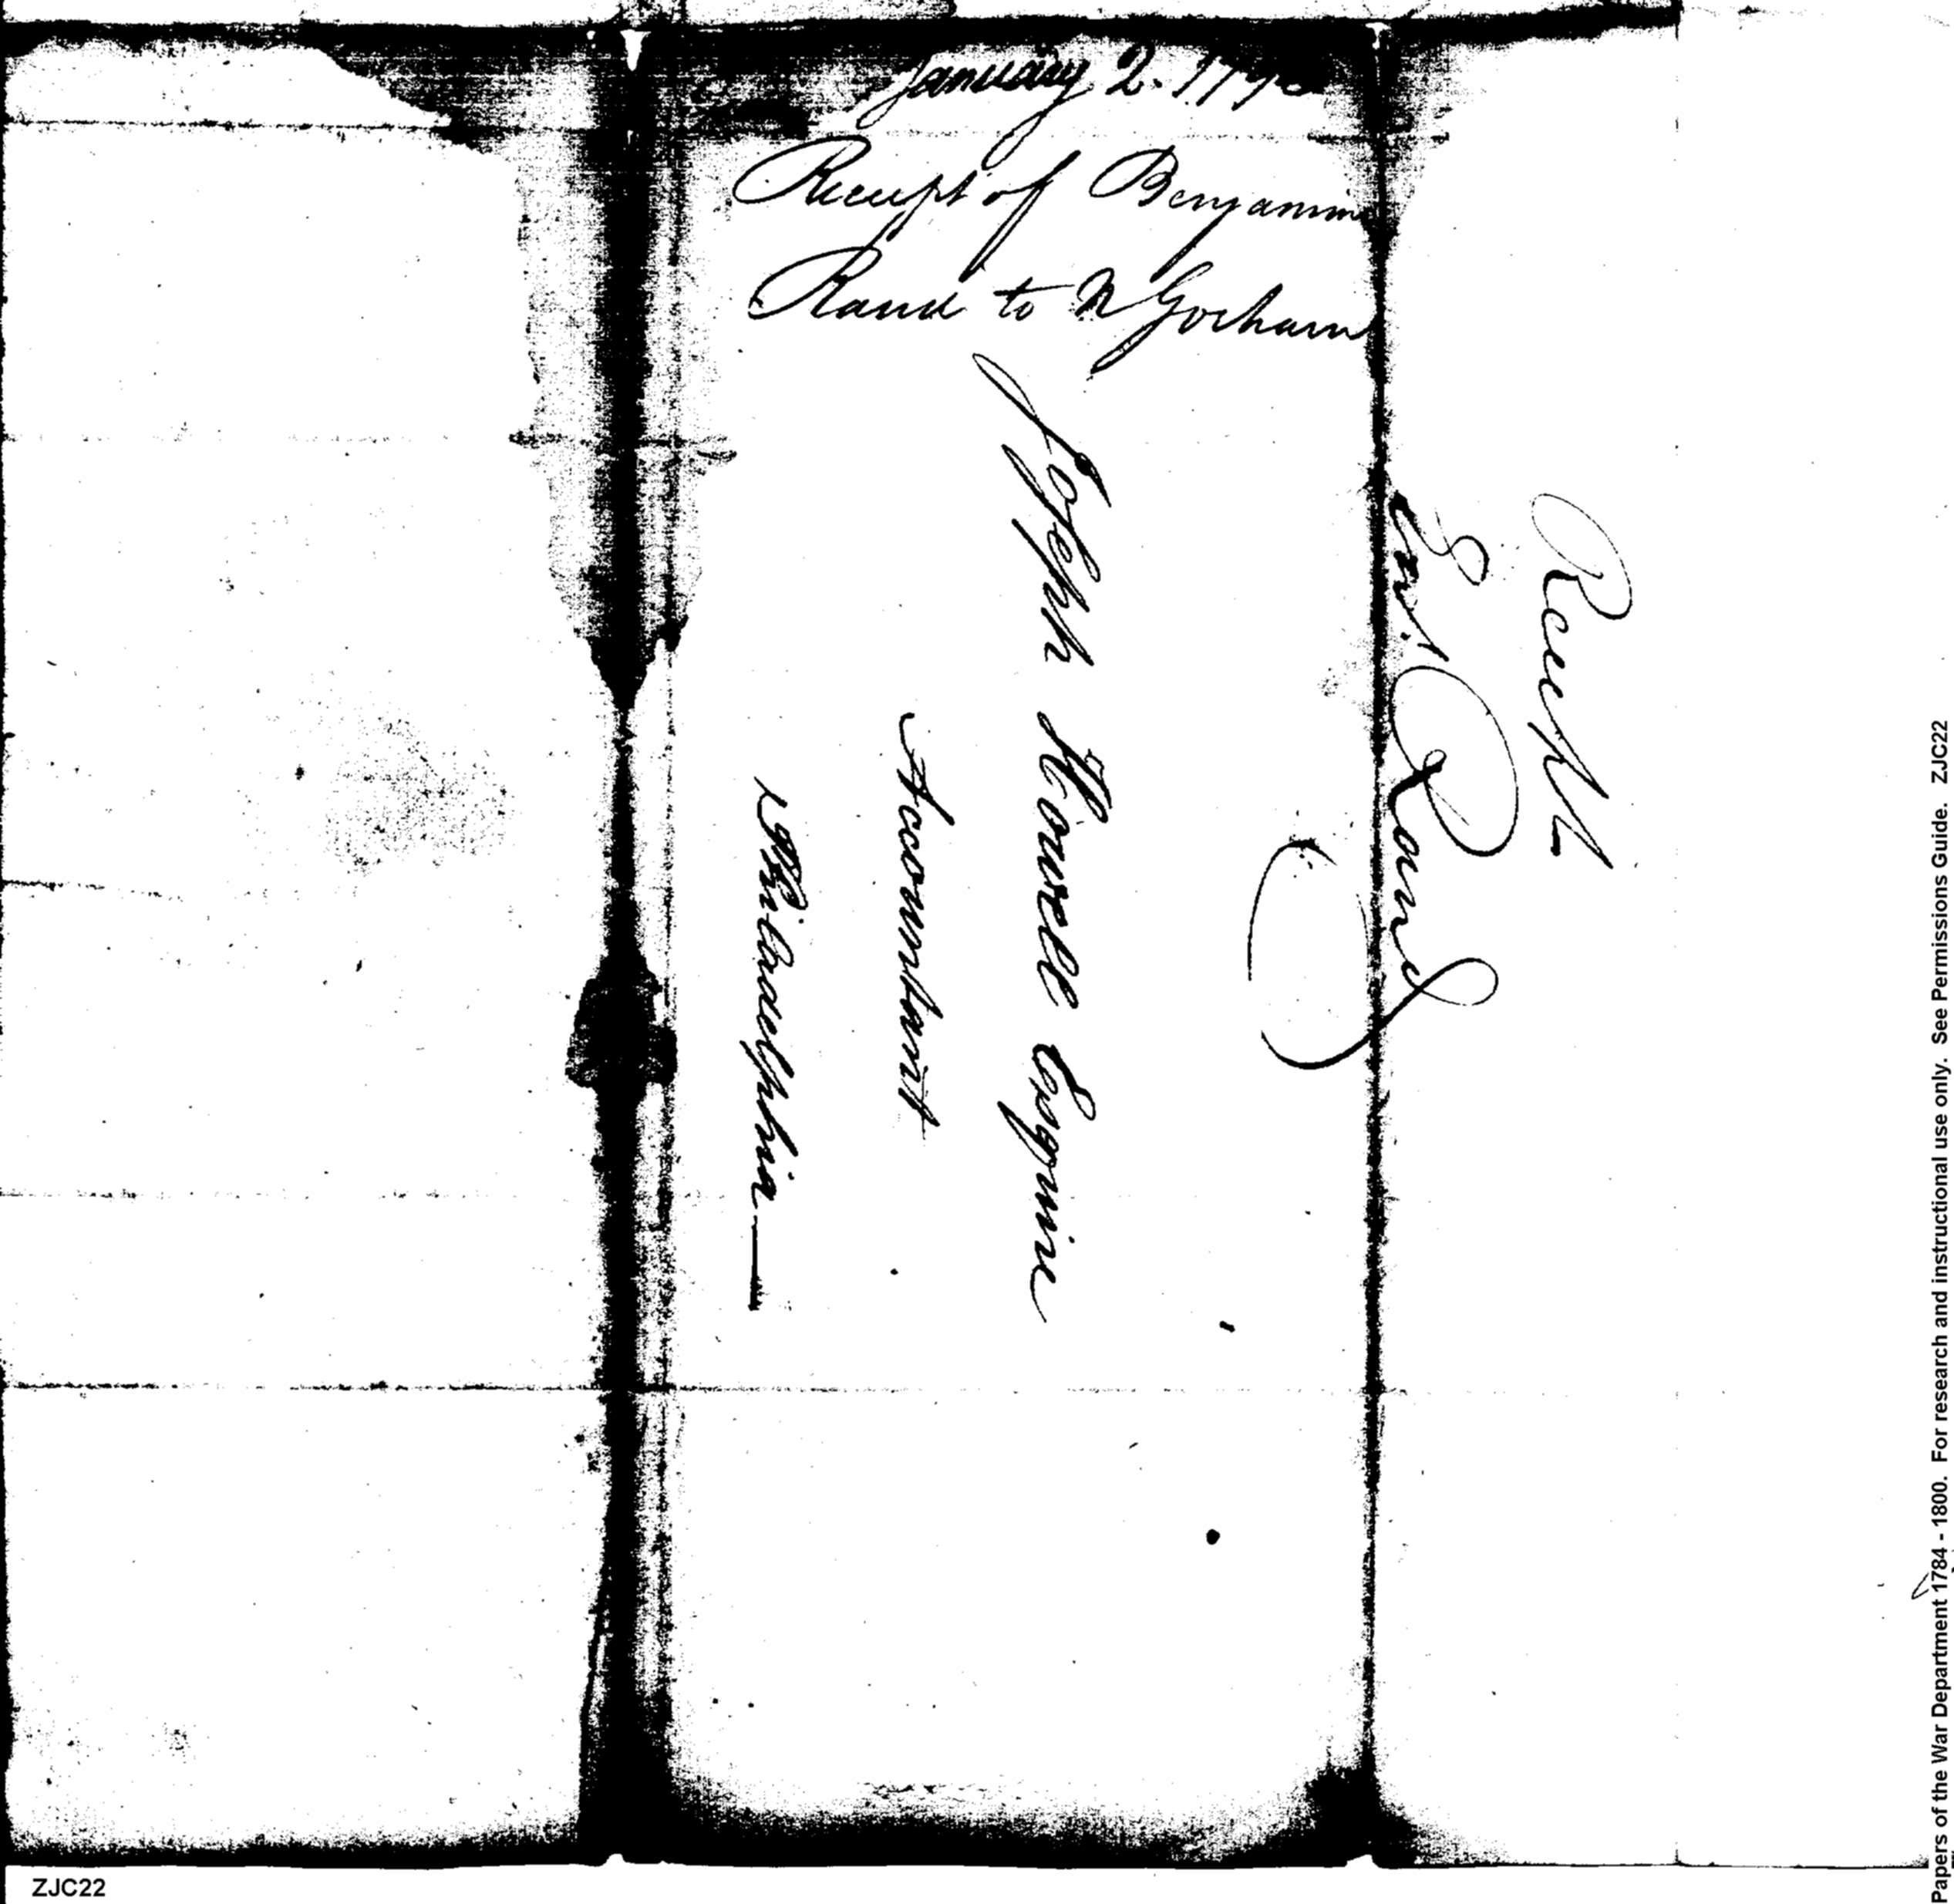 January 2. 179
Receipt of Benjamin
Rand to N Gorham
Joseph Howell Esquire
Accountant
Philadelphia
Receipt
Rand
Papers of the War Department 1784 - 1800. For research and instructional use only. See Permissions Guide. ZJC22
ZJC22